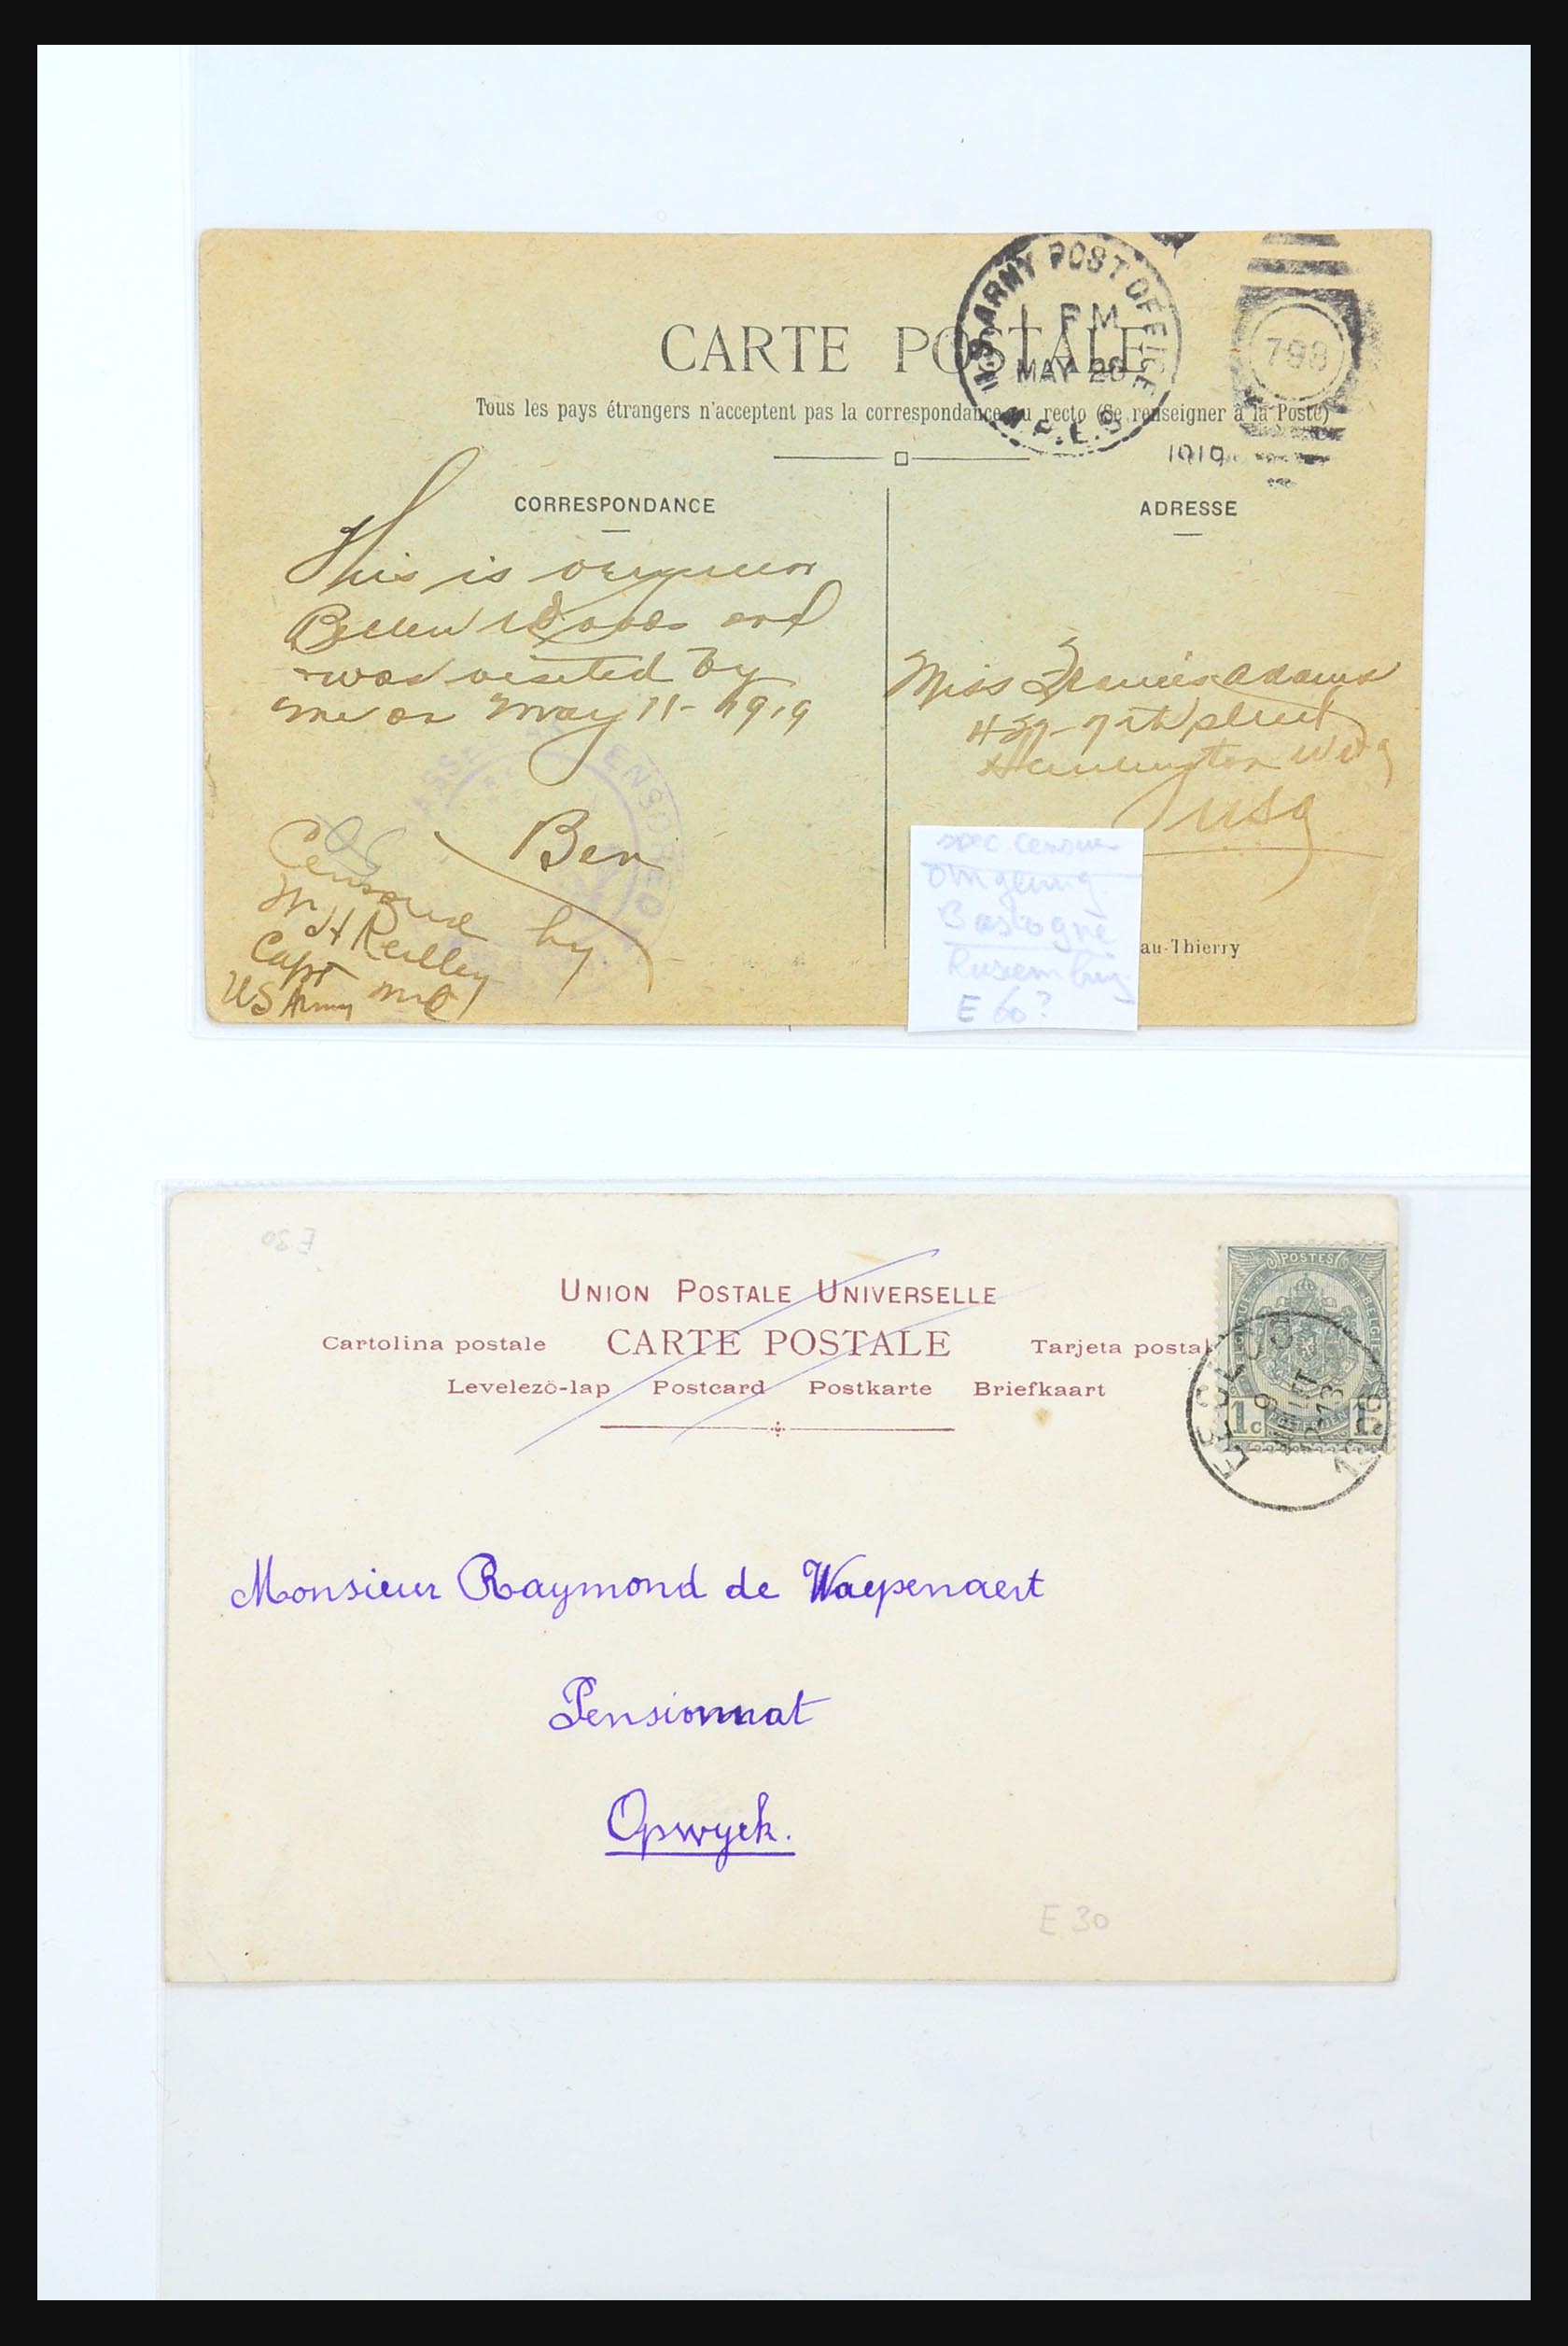 U.S. ARMY POST OFFICE
1 PM
MAY 28
M.P.E.S.
798
1919
CARTE POSTALE
Tous les pays étrangers n'acceptent pas la correspondance au recto (Se renseigner à la Poste)
CORRESPONDANCE
This is
Belleu Woods and
was visited by
me on May 11-1919
Ben
PASSED AS CENSORED
Censored by
H Reilley
Capt MC
US Army
ADRESSE
Miss Francis Adams
7th Street
USA
au-Thierry
spec. censuur
omgeving
Bastogne
E 60?
E 30
UNION POSTALE UNIVERSELLE
Cartolina postale CARTE POSTALE Tarjeta postal
Levelező-lap Postcard Postkarte Briefkaart
POSTES
1c 1c
EECLOO
9
13
Monsieur Raymond de Waepenaert
Pensionnat
Opwyck.
E 30